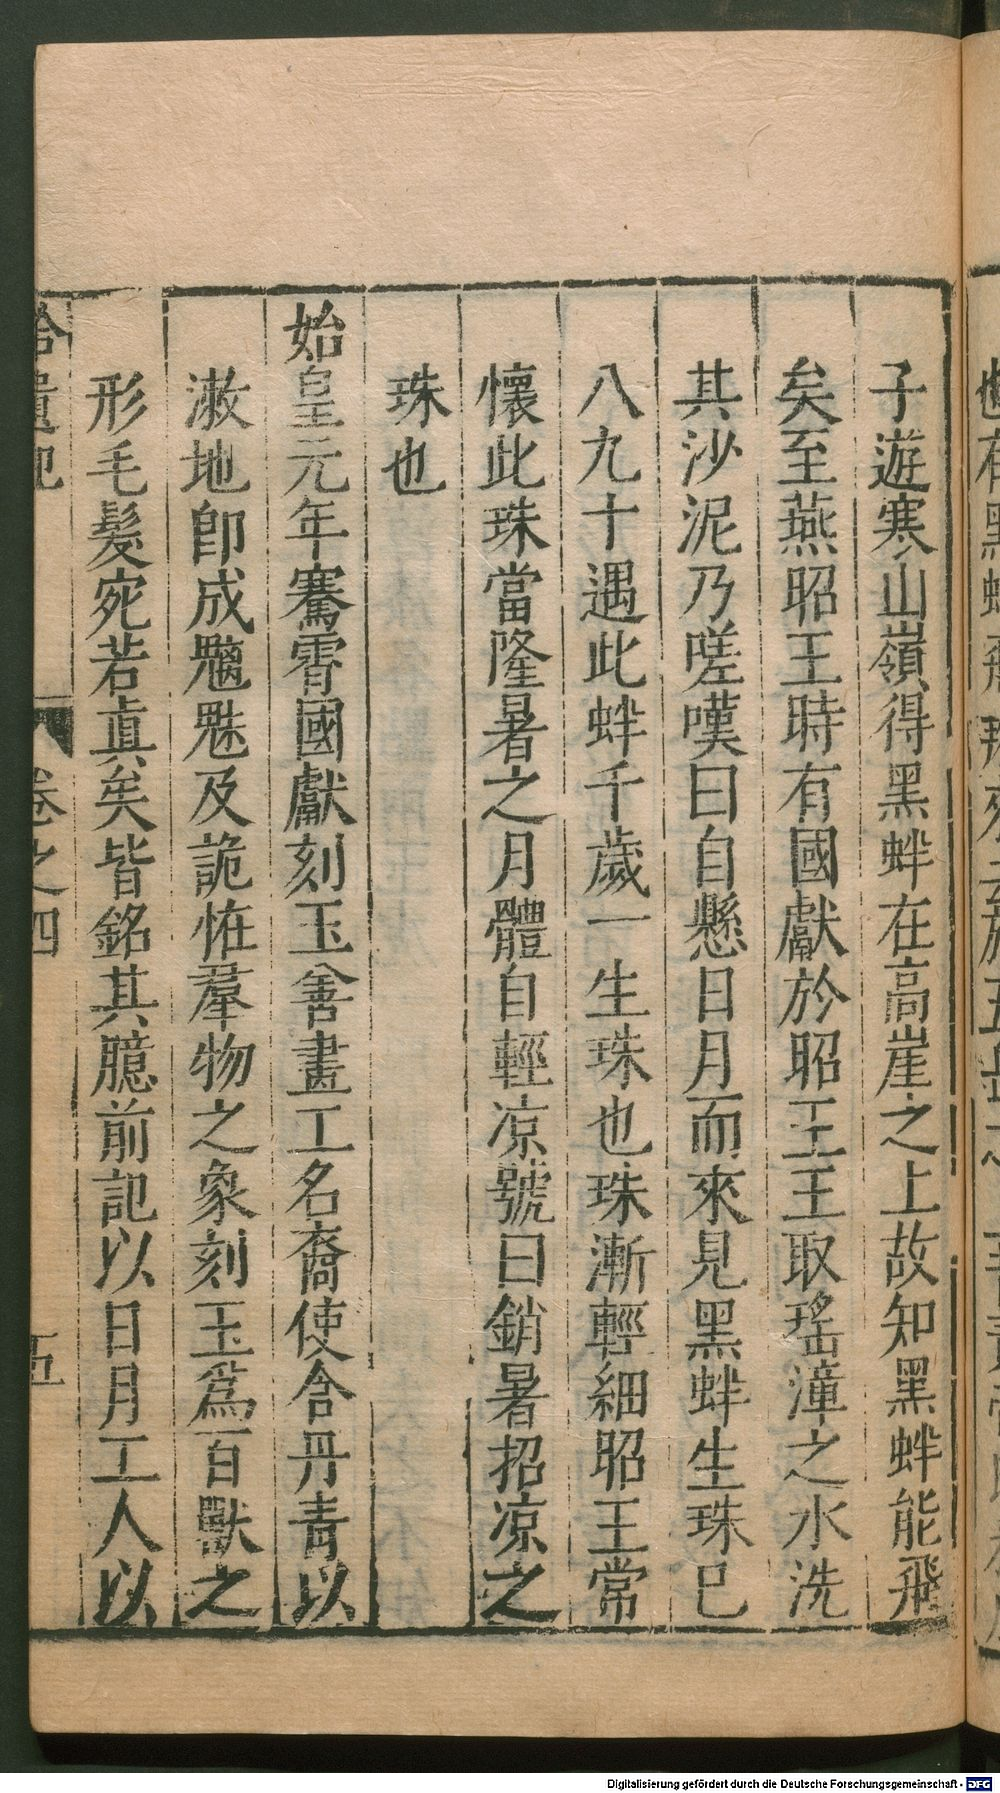 子遊寒山嶺得黑蜯在高崖之上故知黑蜯能飛
矣至燕昭王時有國獻於昭王王取瑤漳之水洗
其沙泥乃嗟嘆曰自懸日月而來見黑蜯生珠已
八九十遇此蜯千歲一生珠也珠漸輕細昭王常
懷此珠當隆暑之月體自輕凉號曰銷暑招凉之
珠也
始皇元年騫霄國獻刻玉善畫工名裔使含丹青以
漱地卽成魑魅及詭恠羣物之象刻玉爲百獸之
形毛髮宛若眞矣皆銘其臆前記以日月工人以
拾遺記 卷之四 五
Digitalisierung gefördert durch die Deutsche Forschungsgemeinschaft - DFG